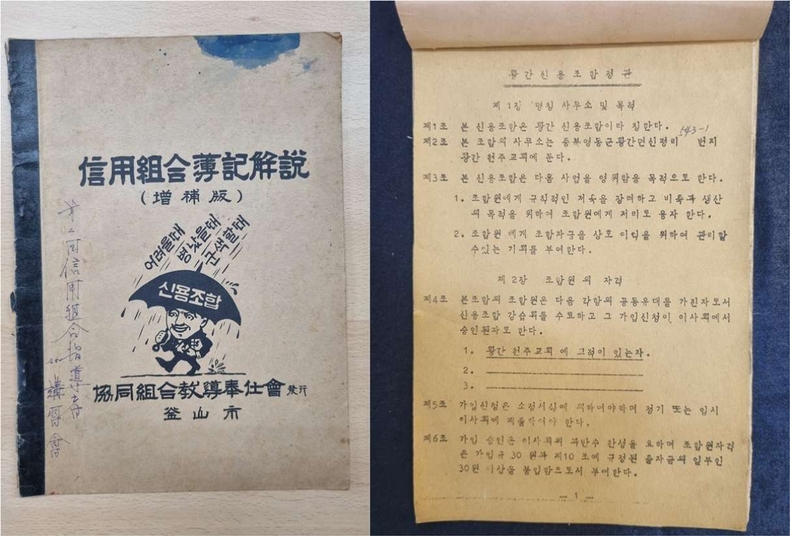 信用組合簿記解說
(增補版)
어려울때
병났을때
궁색할때
신용조합
協同組合敎導奉仕會 發行
釜山市
第二回信用組合指導者
講習會
황간신용조합정관
제1장 명칭 사무소 및 목적
제1조 본 신용조합은 황간 신용조합이라 칭한다.
543-1
제2조 본 조합의 사무소는 충북영동군황간면신정리 번지
황간 천주교회에 둔다.
제3조 본 신용조합은 다음 사업을 영위함을 목적으로 한다.
1. 조합원에게 규칙적인 저축을 장려하고 비축과 생산
의 목적을 위하여 조합원에게 저리로 융자 한다.
2. 조합원 에게 조합자금을 상호 이익을 위하여 관리할
수있는 기회를 부여한다.
제2장 조합원 의 자격
제4조 본조합의 조합원은 다음 각항의 공동유대를 가진자로서
신용조합 강습회를 수료하고 그 가입신청이 이사회에서
승인된자로 한다.
1. 황간 천주교회 에 교적이 있는자.
2.
3.
제5조 가입신청은 소정서식에 의하여야하며 정기 또는 임시
이사회에 제출하여야 한다.
제6조 가입 승인은 이사회의 과반수 찬성을 요하며 조합원자격
은 가입금 30원과 제10조에 규정된 출자금의 일부인
30원 이상을 불입함으로서 부여한다.
- 1 -